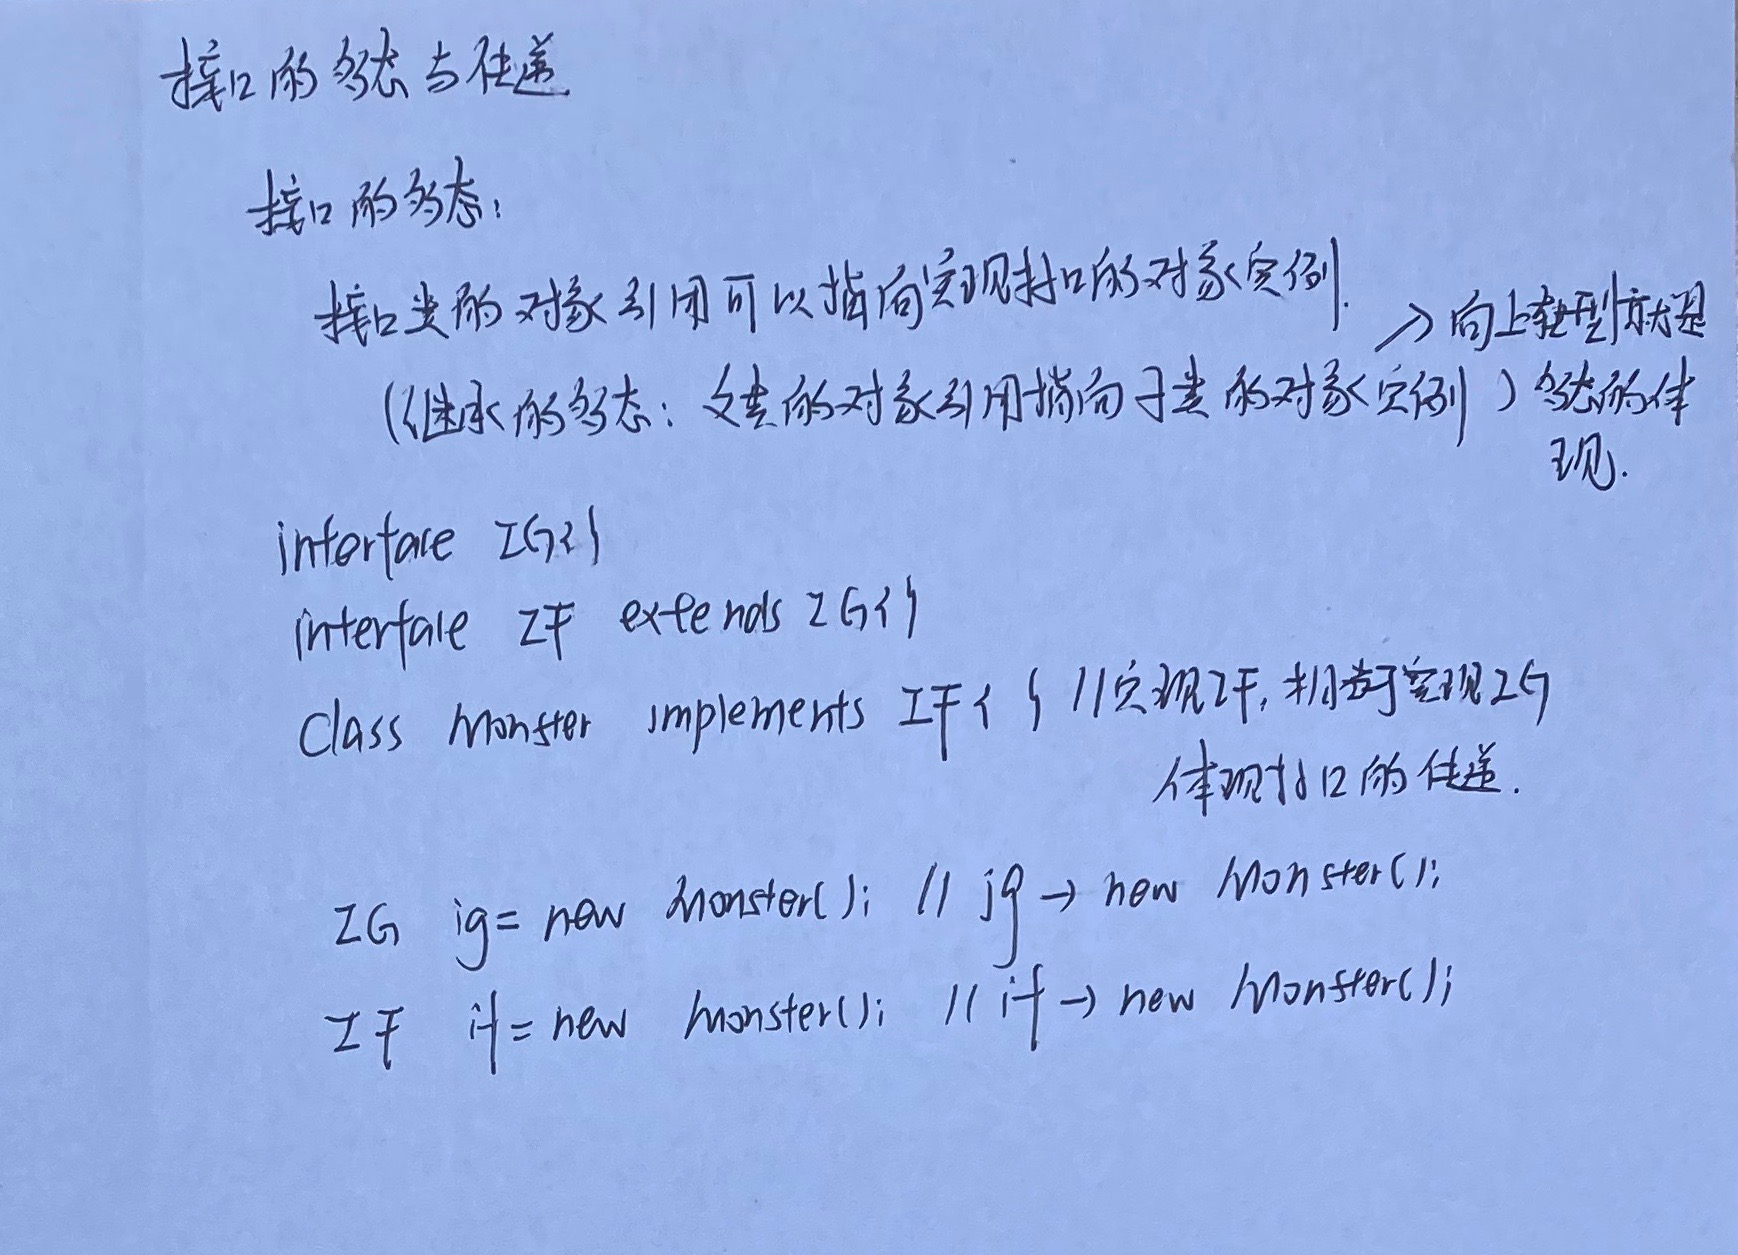 接口的多态与传递
接口的多态:
接口类的对象引用可以指向实现接口的对象实例.
(继承的多态: 父类的对象引用指向子类的对象实例)
→ 向上转型就是
多态的体
现.
interface IG{}
interface IF extends IG{}
class Monster implements IF{ } //实现IF, 相当于实现IG
体现接口的传递.
IG ig = new Monster(); // ig → new Monster();
IF if = new Monster(); // if → new Monster();